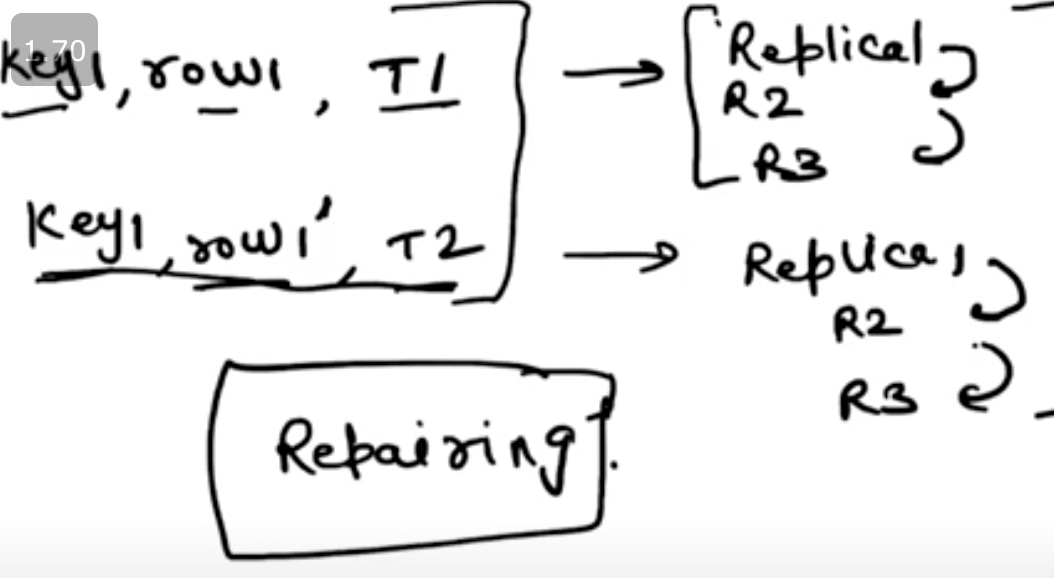 1.70
Key1, row1, T1 → Replica1
R2
R3
Key1, row1', T2 → Replica1
R2
R3
Repairing.